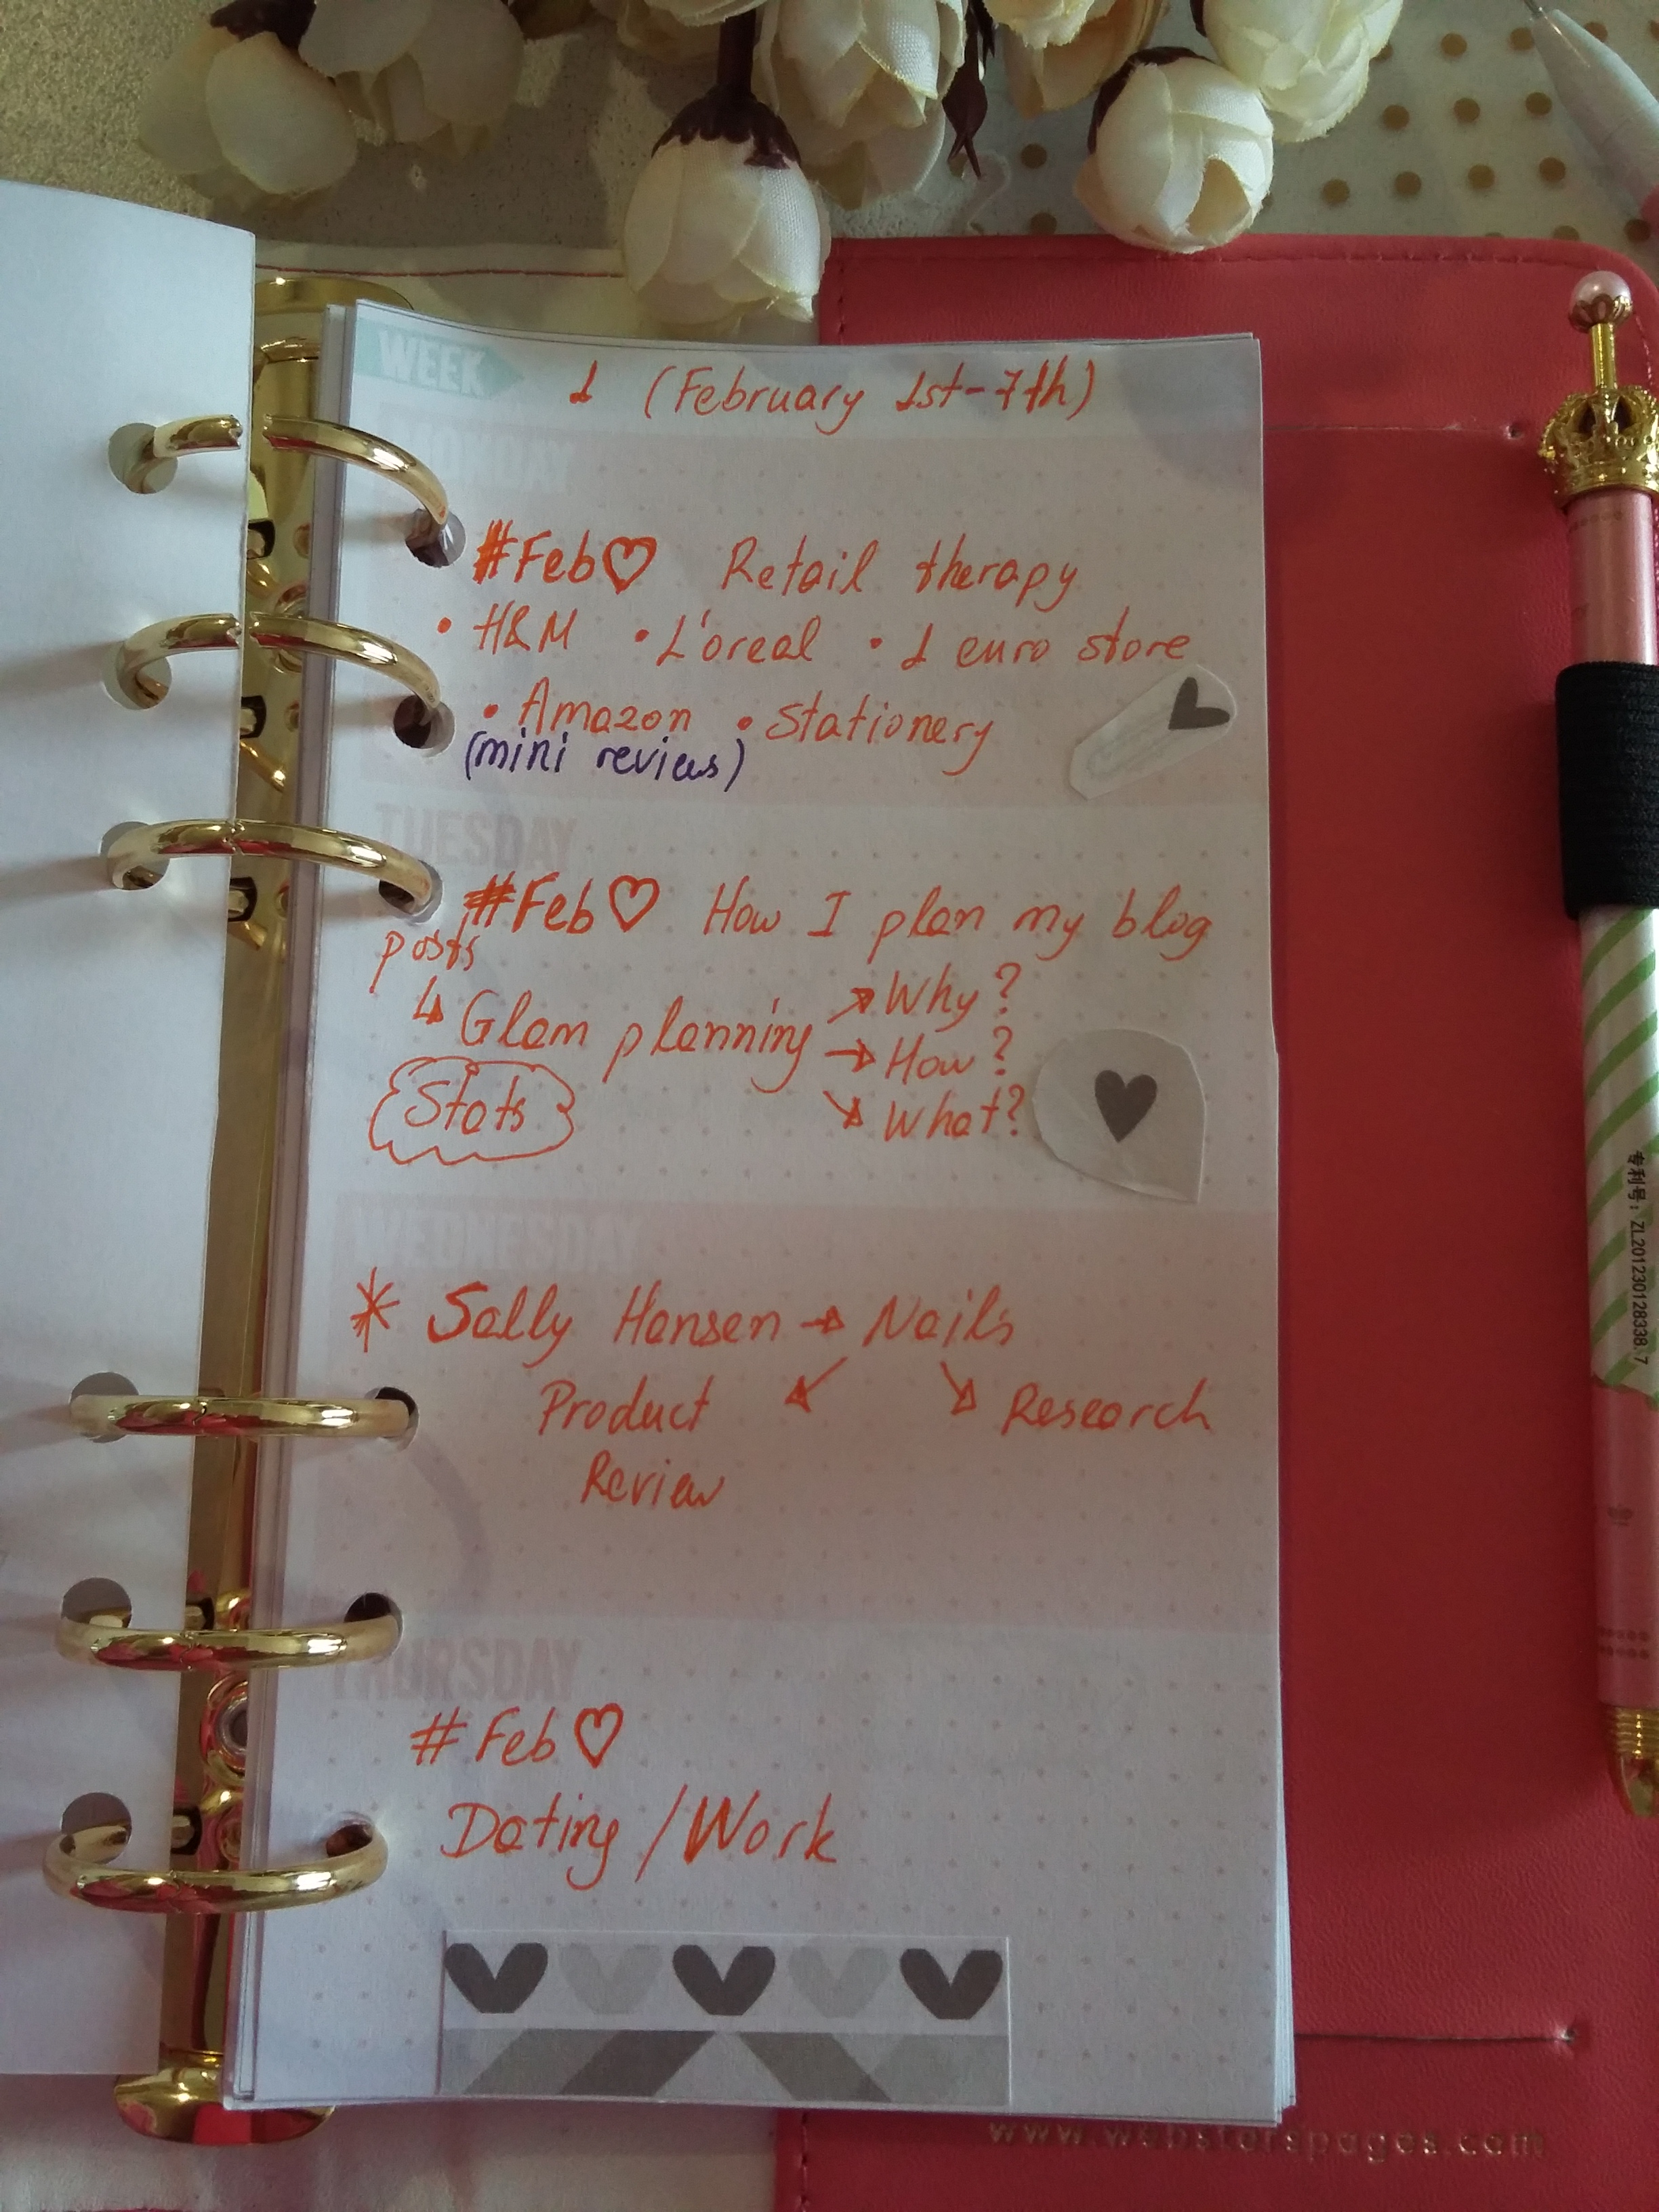 WEEK 1 (February 1st-7th)
MONDAY
#Feb♡ Retail therapy
• H&M • L'oreal • 1 euro store
• Amazon • Stationery
(mini reviews)
TUESDAY
#Feb♡ How I plan my blog
posts
↳ Glam planning → Why?
→ How?
→ What?
Stats
WEDNESDAY
* Sally Hansen → Nails
Product Research
Review
THURSDAY
#Feb♡
Dating / Work
专利号: ZL201230128338.7
www.websterspages.com